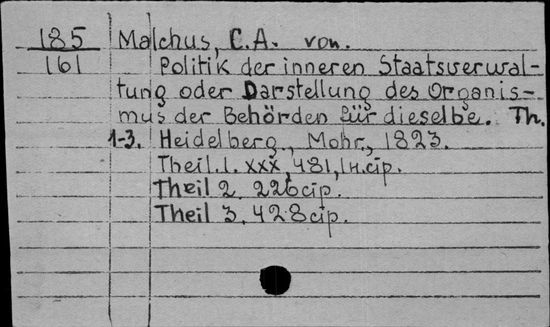 185 Malchus, C.A. von.
161 Politik der inneren Staatsverwal-
tung oder Darstellung des Organis-
mus der Behörden für dieselbe. Th.
1-3. Heidelberg, Mohr, 1823.
Theil. 1. XXX, 481, 1 н.стр.
Theil 2. 226 стр.
Theil 3. 428 стр.